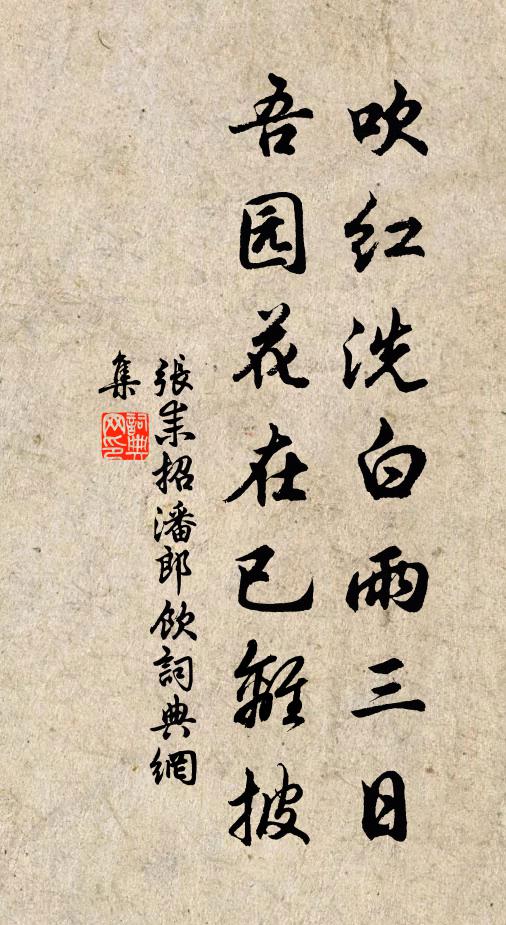 吹红洗白雨三日
吾园花在已離披
張耒招潘郎飲詞典網
集
詞典
网印